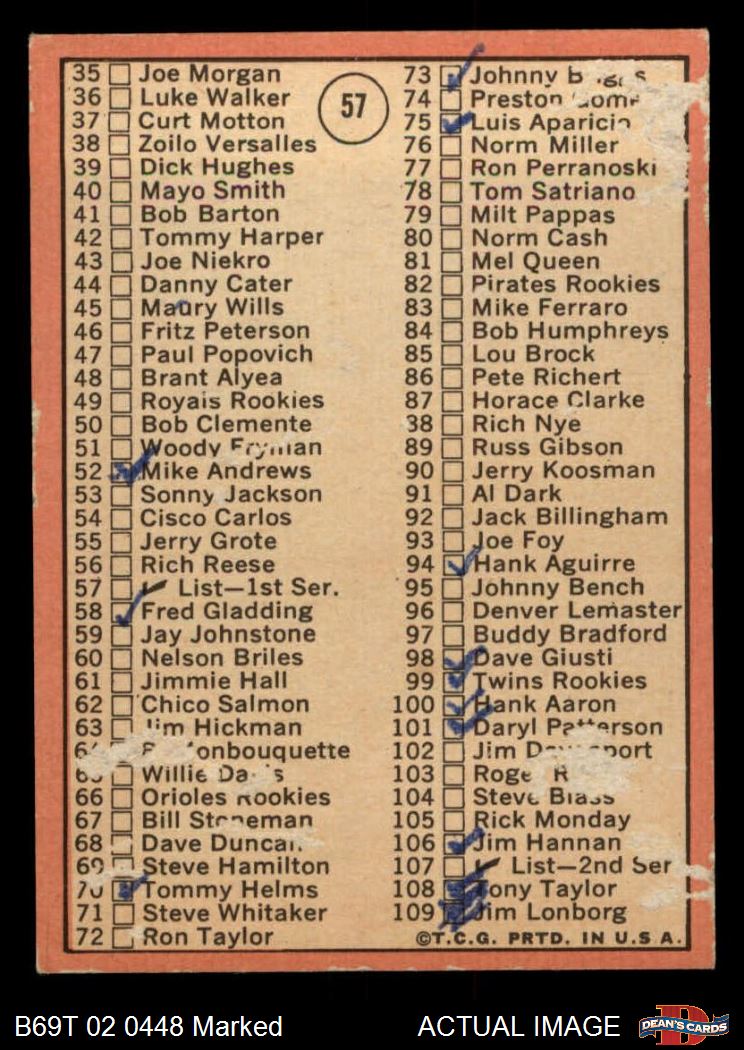 57
35 Joe Morgan
36 Luke Walker
37 Curt Motton
38 Zoilo Versalles
39 Dick Hughes
40 Mayo Smith
41 Bob Barton
42 Tommy Harper
43 Joe Niekro
44 Danny Cater
45 Maury Wills
46 Fritz Peterson
47 Paul Popovich
48 Brant Alyea
49 Royals Rookies
50 Bob Clemente
51 Woody Fryman
52 Mike Andrews
53 Sonny Jackson
54 Cisco Carlos
55 Jerry Grote
56 Rich Reese
57 List—1st Ser.
58 Fred Gladding
59 Jay Johnstone
60 Nelson Briles
61 Jimmie Hall
62 Chico Salmon
63 Jim Hickman
onbouquette
Willie
66 Orioles Rookies
67 Bill
68 Dave
69 Steve Hamilton
70 Tommy Helms
71 Steve Whitaker
72 Ron Taylor
73 Johnny
74 Preston
75 Luis Aparicio
76 Norm Miller
77 Ron Perranoski
78 Tom Satriano
79 Milt Pappas
80 Norm Cash
81 Mel Queen
82 Pirates Rookies
83 Mike Ferraro
84 Bob Humphreys
85 Lou Brock
86 Pete Richert
87 Horace Clarke
38 Rich Nye
89 Russ Gibson
90 Jerry Koosman
91 Al Dark
92 Jack Billingham
93 Joe Foy
94 Hank Aguirre
95 Johnny Bench
96 Denver Lemaster
97 Buddy Bradford
98 Dave Giusti
99 Twins Rookies
100 Hank Aaron
101 Daryl Patterson
102 Jim
103
104 Steve Blass
105 Rick Monday
106 Jim Hannan
107 List—2nd Ser
108 Tony Taylor
109 Jim Lonborg
©T.C.G. PRTD. IN U.S A.
B69T 02 0448 Marked ACTUAL IMAGE DEAN'S CARDS